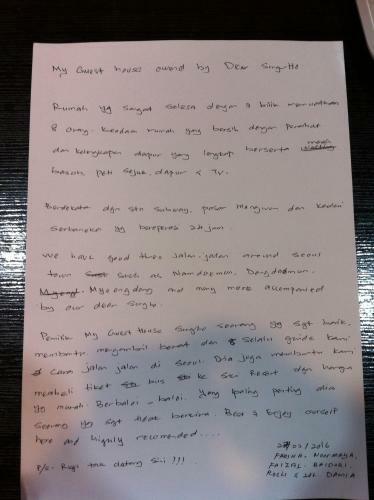 My Guest house owned by Dear Sung Ho
Rumah yg sangat selesa dengan 3 bilik memuatkan
8 orang. Keadaan rumah yang bersih dengan perabot
dan kelengkapan dapur yang lengkap beserta mesin
basuh, peti sejuk, dapur & TV.
Berdekatan dgn stn subway, pasar Mangwon dan kedai
serbaneka yg beroperasi 24 jam.
We have good time jalan-jalan around seoul
town such as Namdaemun, Dongdaemun,
Myeongdong and many more accompanied
by our dear Sungho.
Pemilik My Guest House Sungho seorang yg sgt baik,
membantu mengambil berat dan selalu guide kami
cara jalan-jalan di Seoul. Dia juga membantu kami
membeli tiket bus ke Ski Resort dgn harga
yg murah. Berbaloi-baloi. Yang paling penting dia
seorang yg sgt tidak berkira. Best & Enjoy ourself
here and highly recomended....
P/s: Rugi tak datang sini !!!
02/2016
FARINA, NORMAYA,
FAIZAL, BAIDURI,
DAMIA